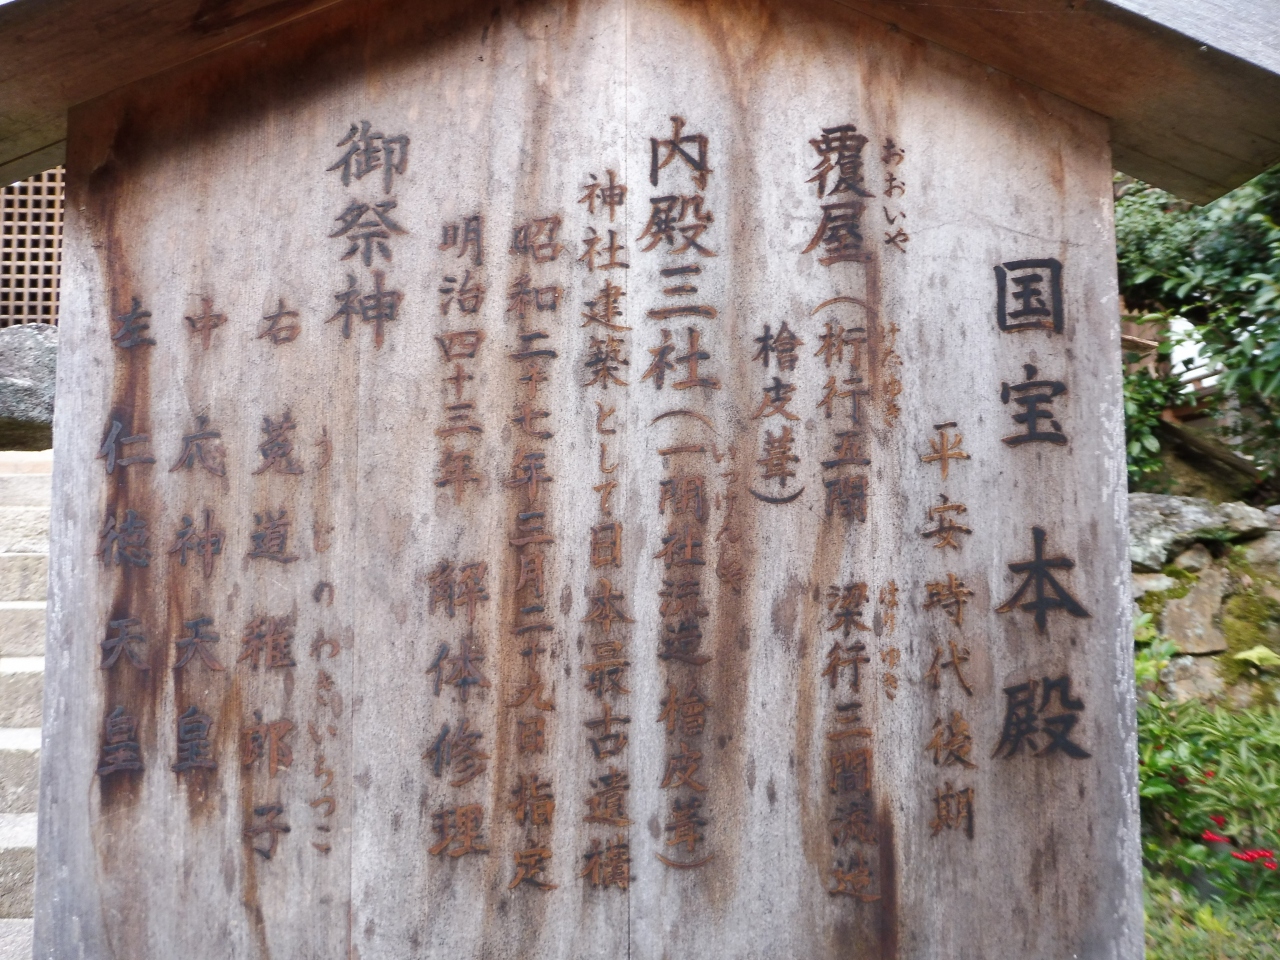 国宝 本殿
平安時代後期
おおいや
覆屋(桁行五間 梁行三間流造
けたゆき はりゆき
檜皮葺)
内殿三社(一間社流造檜皮葺)
いっけんしゃ
神社建築として日本最古遺構
昭和二十七年三月二十九日指定
明治四十三年 解体修理
御祭神
右 菟道稚郎子
うじのわきいらつこ
中 応神天皇
左 仁徳天皇